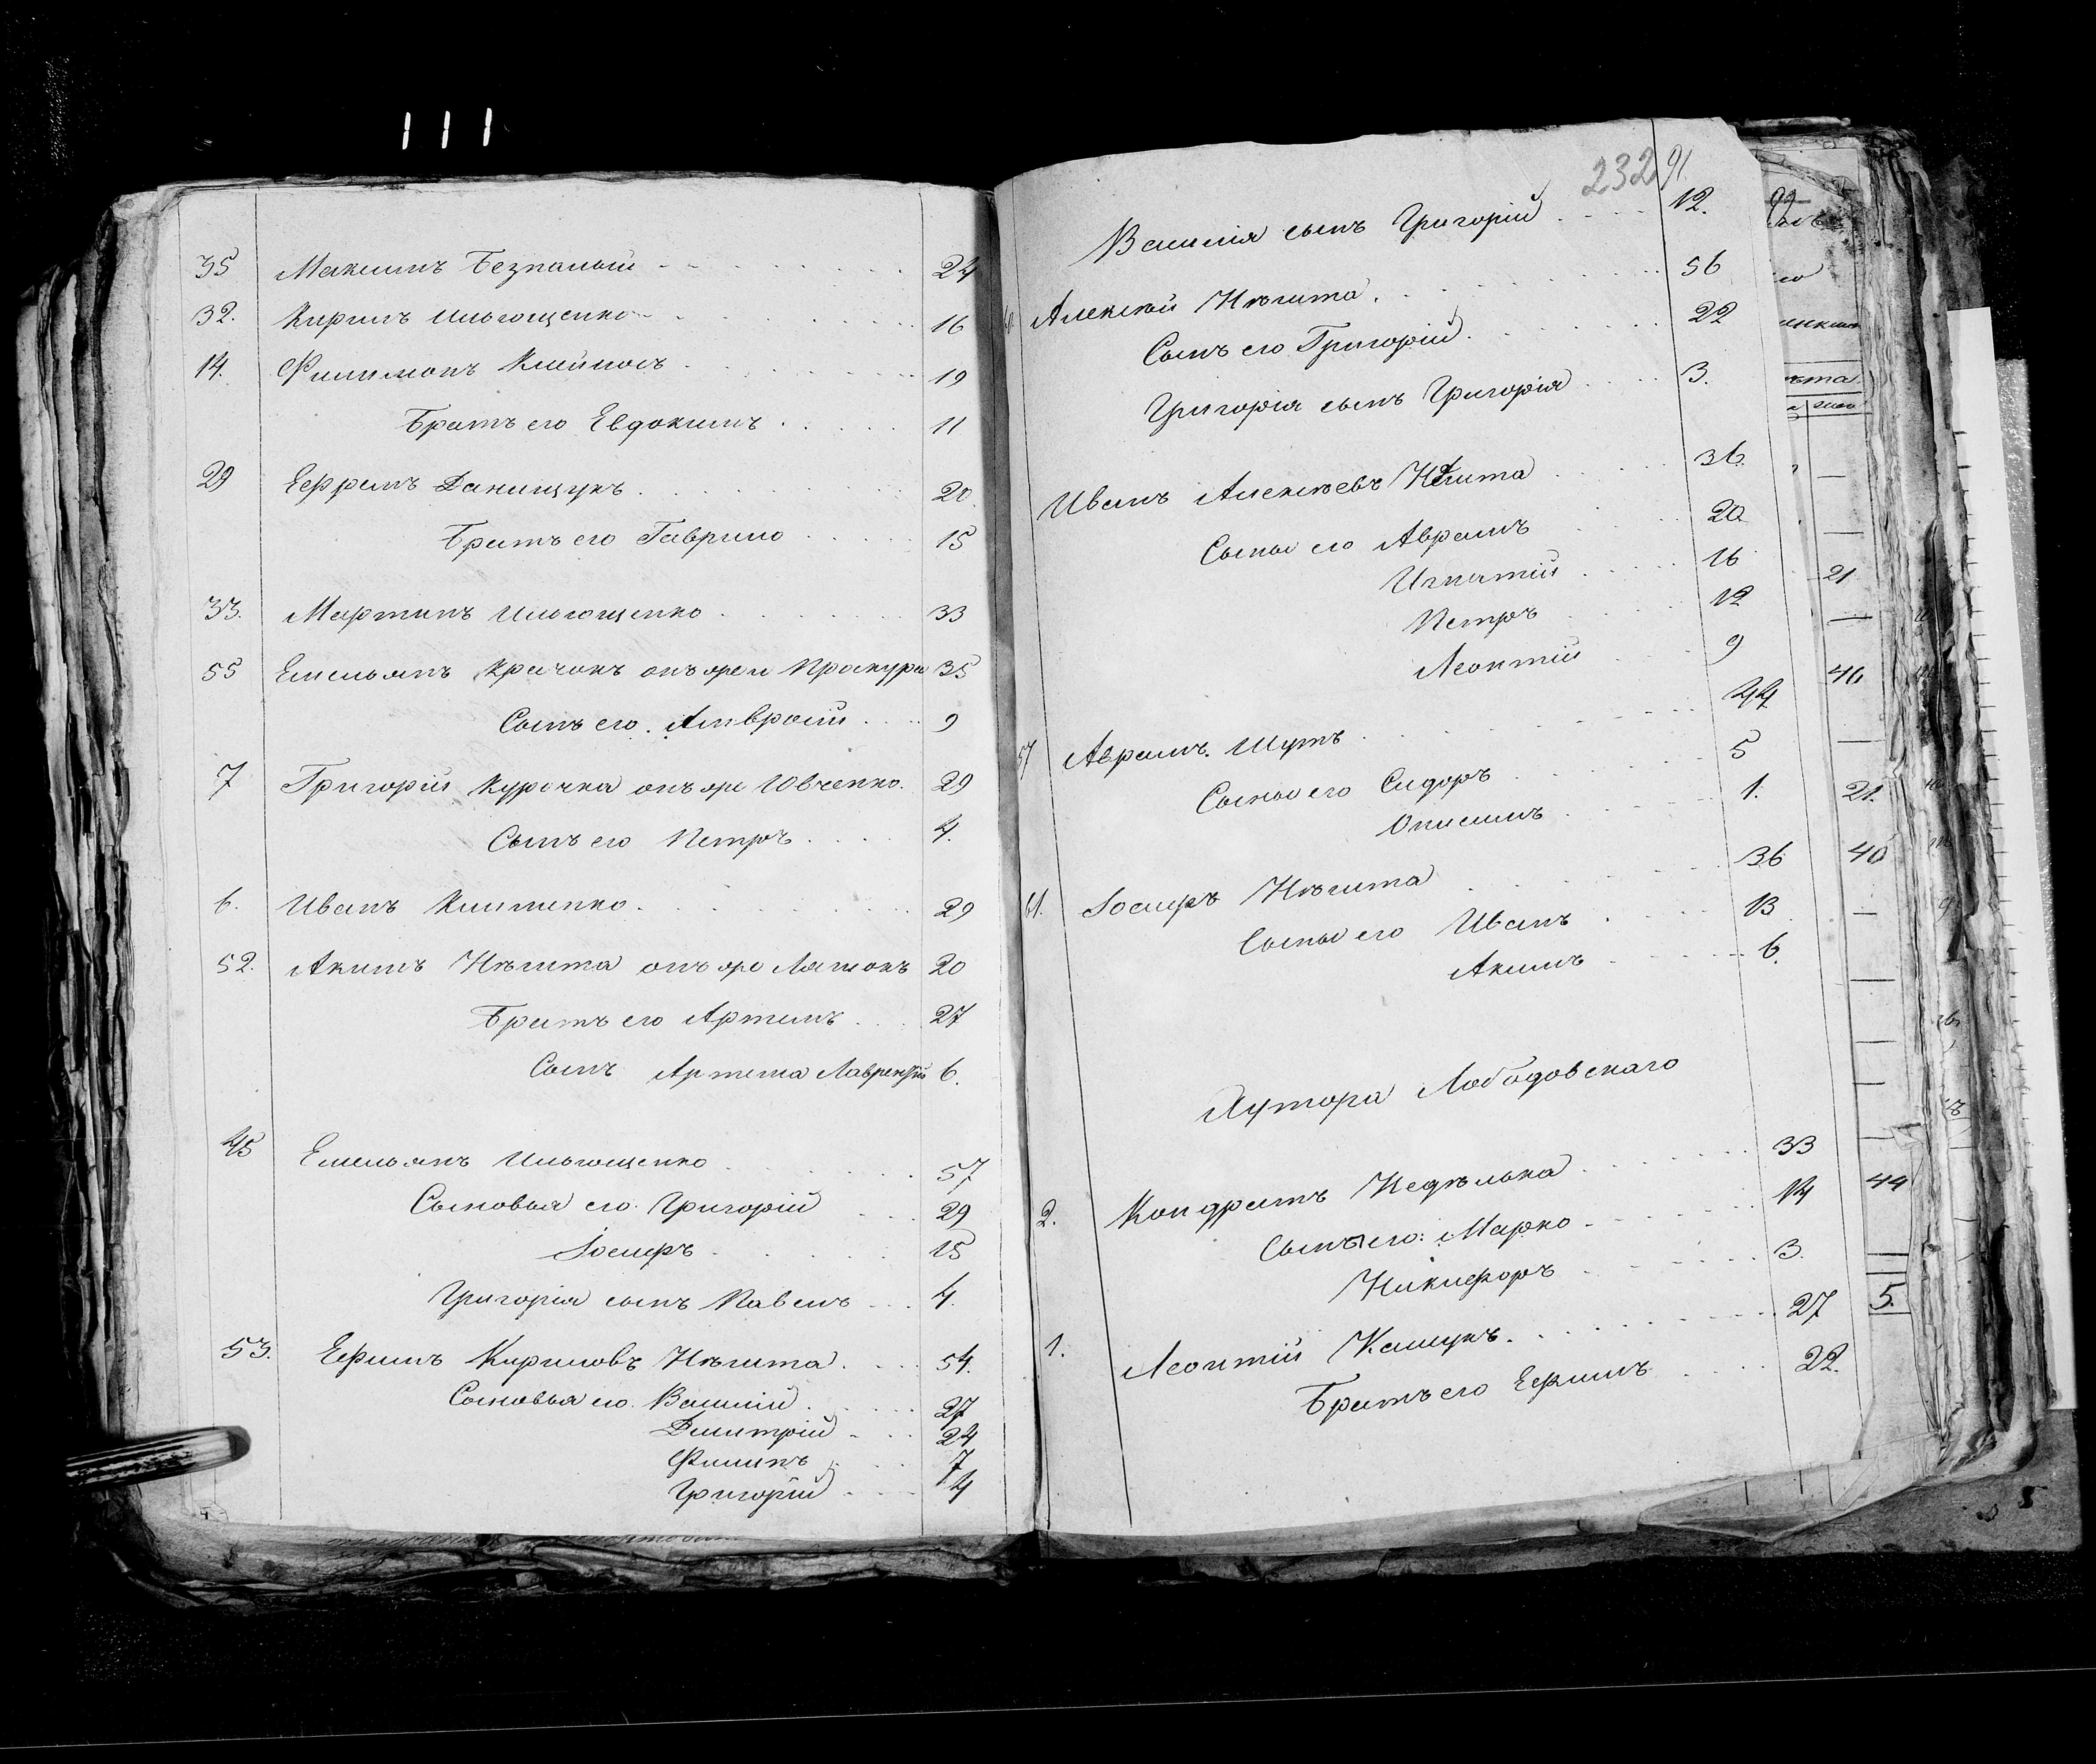 111
35 Максимъ Безпалый 24
32. Кирилъ Ильющенко 16
14. Филимонъ Клименъ 19
Братъ его Евдокимъ 11
29 Ефремъ Данищукъ 20
Братъ его Гаврило 15
33. Мартинъ Ильющенко 33
55 Емельянъ Крачокъ онъ же и Прокура 35
Сынъ его Амвросій 9
7 Григорій Курочка онъ же Ювченко. 29
Сынъ его Петръ 4.
6. Иванъ Клименко 29
52. Акимъ Нѣгита онъ же Лятокъ 20
Братъ его Артемъ 27
Сынъ Артема Лаврентій 6.
45 Емельянъ Ильющенко 57
Сыновья его Григорій 29
Іосифъ 15
Григорія сынъ Павелъ 4.
53. Ефимъ Кириловъ Нѣгита 54.
Сыновья его Василій 27
Дмитрій 24
Филипъ 7
Григорій 4
232 91.
Василія сынъ Григорій 12.
Алексѣй Нѣгита 56
Сынъ его Григорій 22
Григорія сынъ Григорія 3.
Иванъ Алексѣевъ Нѣгита 36.
Сыны его Аврамъ 20
Игнатій 16
Петръ 12
Леонтій 9
57 Аврамъ Шутъ 44
Сыны его Сидоръ 5
Онисимъ 1.
61. Іосифъ Нѣгита 36
Сыны его Иванъ 13
Акимъ 6.
Хутора Лободовскаго
2. Кондратъ Недѣлька 33
Сынъ его: Марко 14
Никифоръ 3.
1. Леонтій Кашукъ 27
Братъ его Ефимъ 22.
21
40
21.
40
44
5.